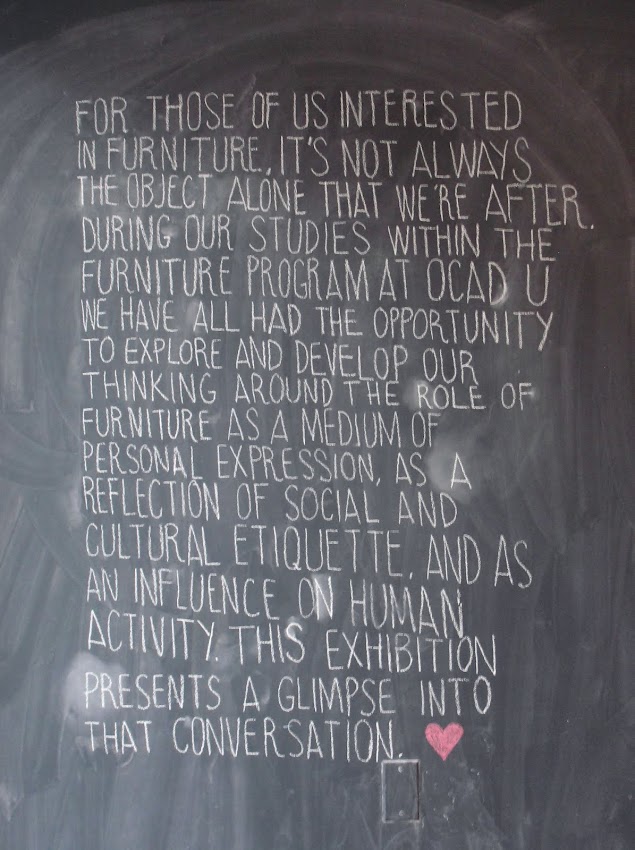 FOR THOSE OF US INTERESTED
IN FURNITURE, IT'S NOT ALWAYS
THE OBJECT ALONE THAT WE'RE AFTER.
DURING OUR STUDIES WITHIN THE
FURNITURE PROGRAM AT OCAD U
WE HAVE ALL HAD THE OPPORTUNITY
TO EXPLORE AND DEVELOP OUR
THINKING AROUND THE ROLE OF
FURNITURE AS A MEDIUM OF
PERSONAL EXPRESSION, AS A
REFLECTION OF SOCIAL AND
CULTURAL ETIQUETTE, AND AS
AN INFLUENCE ON HUMAN
ACTIVITY. THIS EXHIBITION
PRESENTS A GLIMPSE INTO
THAT CONVERSATION.